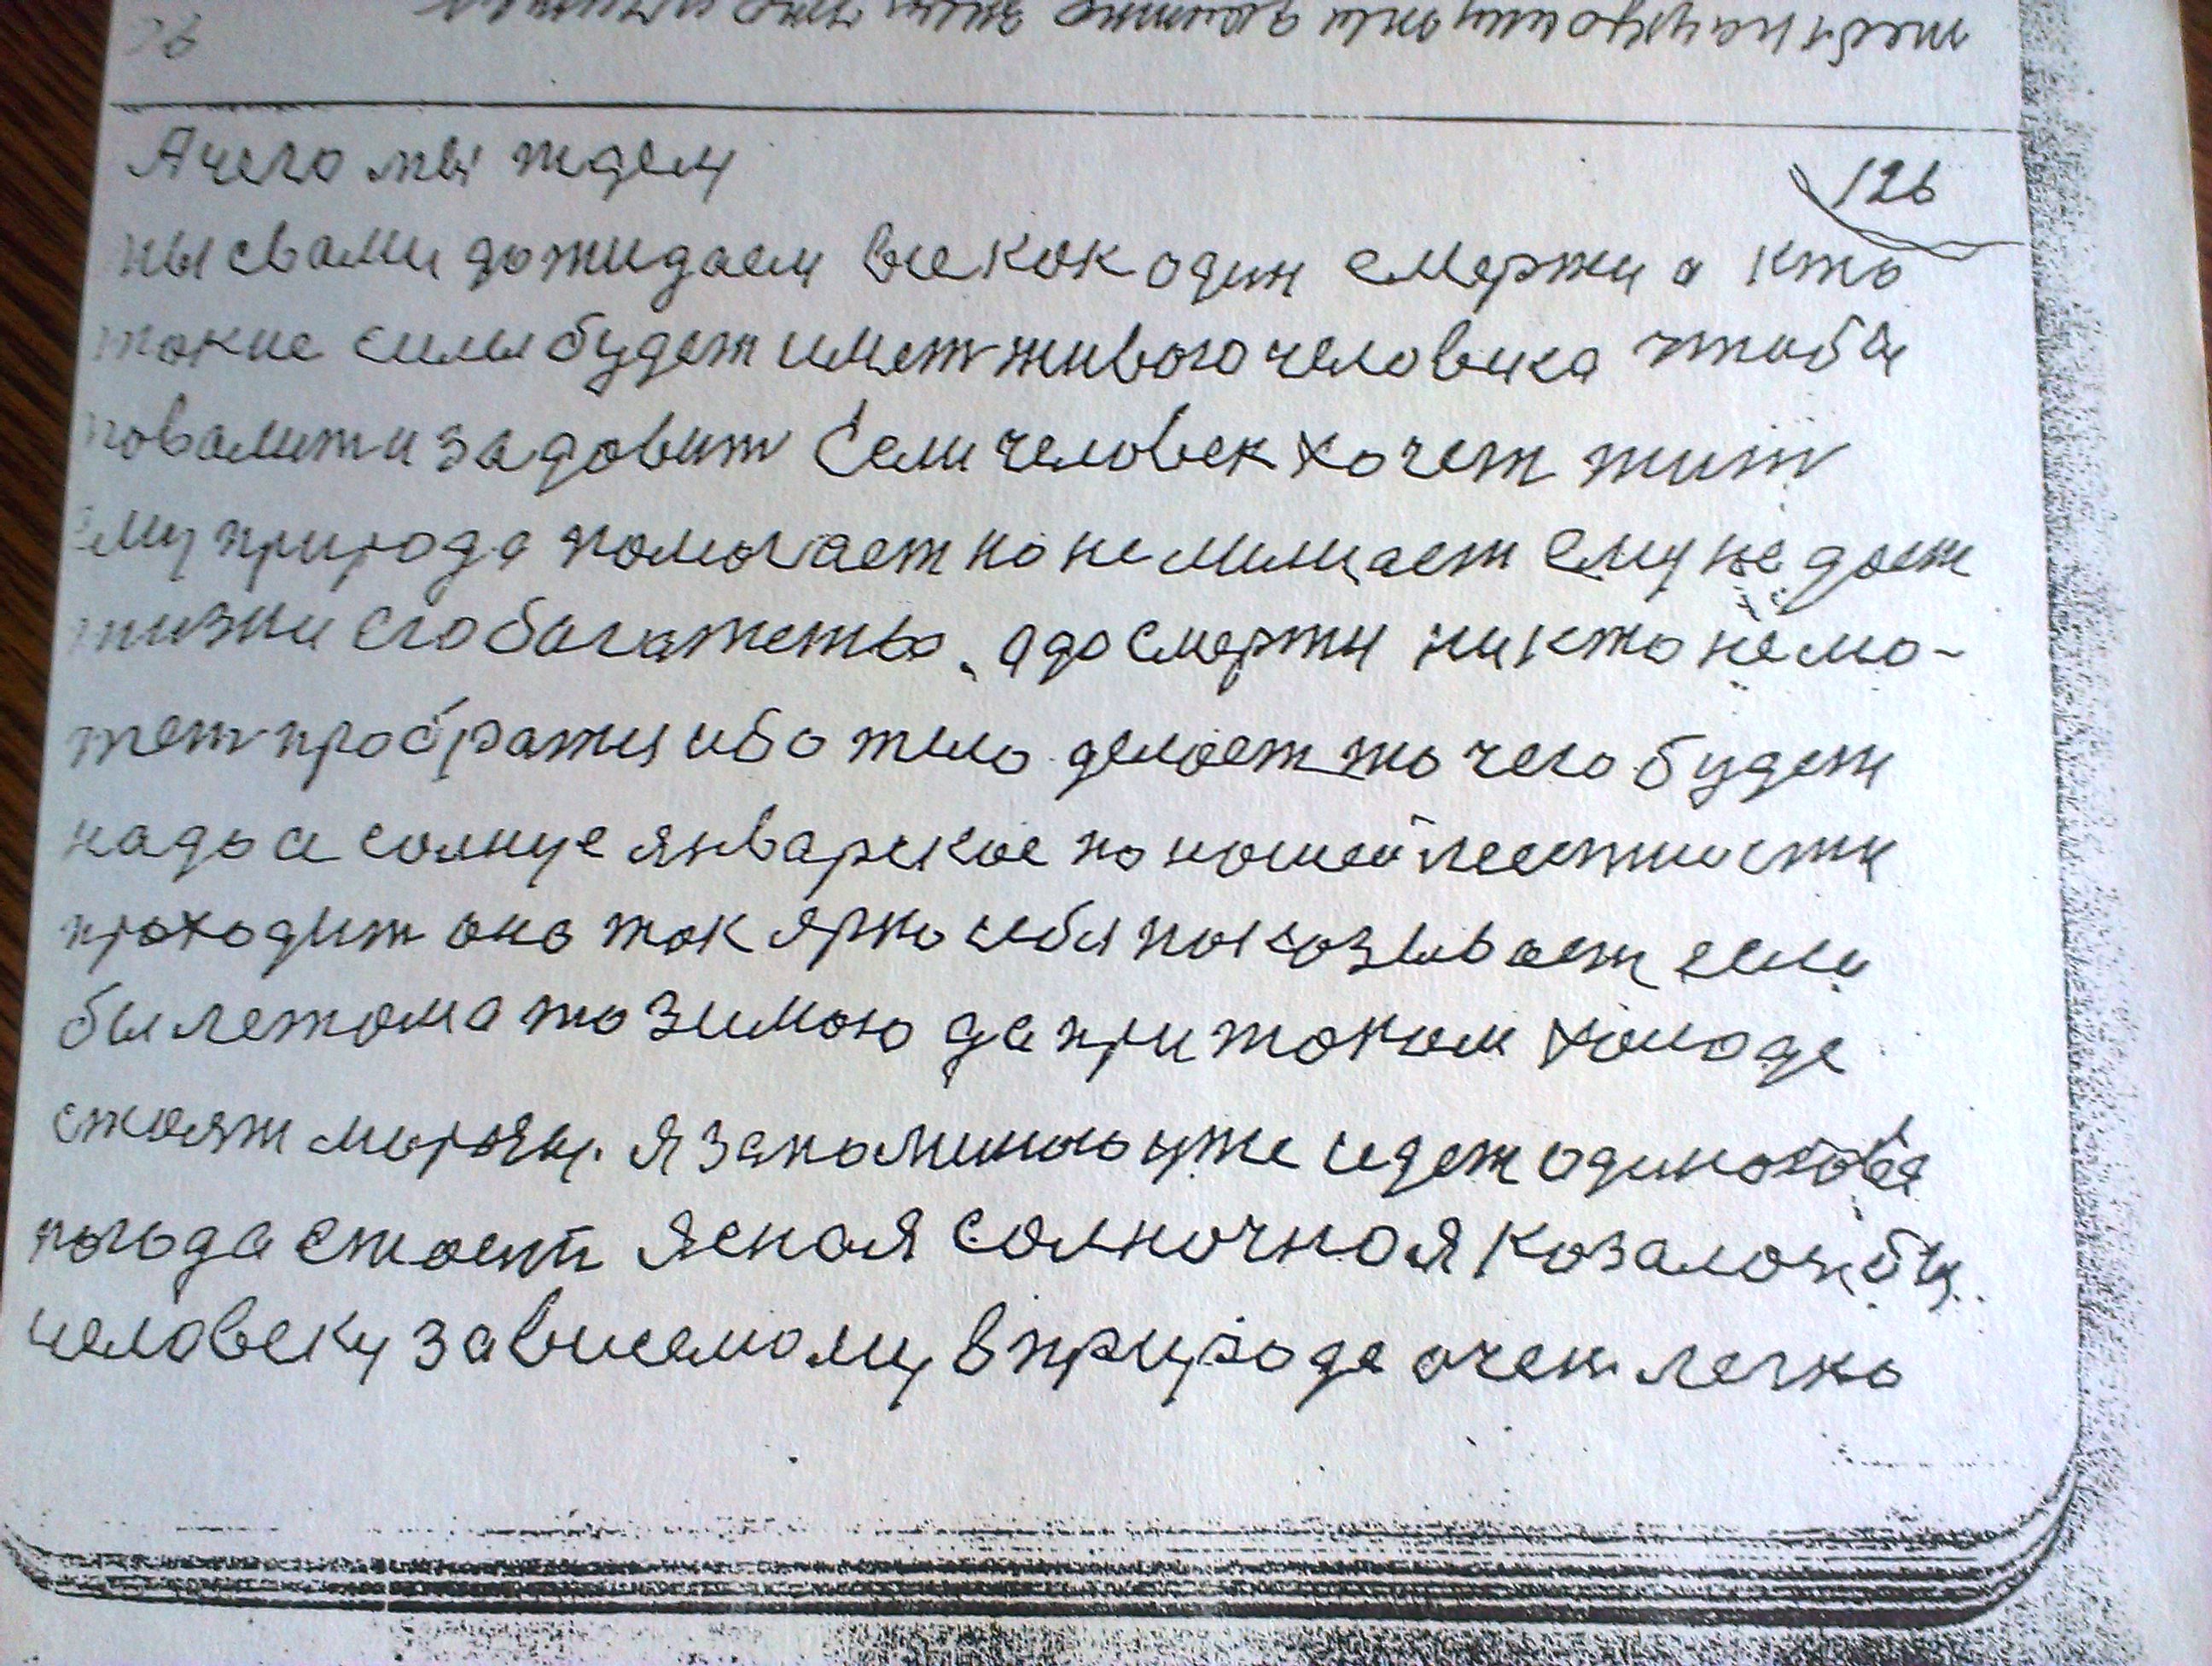 А чего мы ждем
126
мы свами дожидаем все как один смерти а кто
такие силы будет имет живого человека чтобы
повалит и задавит Если человек хочет жит
ему природа помогает но не мишает ему не дает
жизни его багатство. а до смерти никто не мо-
жет пробратия ибо тело делает то чего будет
надо а солнце январское по нашей местности
проходит оно так ярко себя показывает если
бы летом а то зимою да при таком холоде
стоят морозы. Я запоминаю уже идет одинокова
погода стоит ясная солночная козалос бы
человеку зависемому в природе очен легко